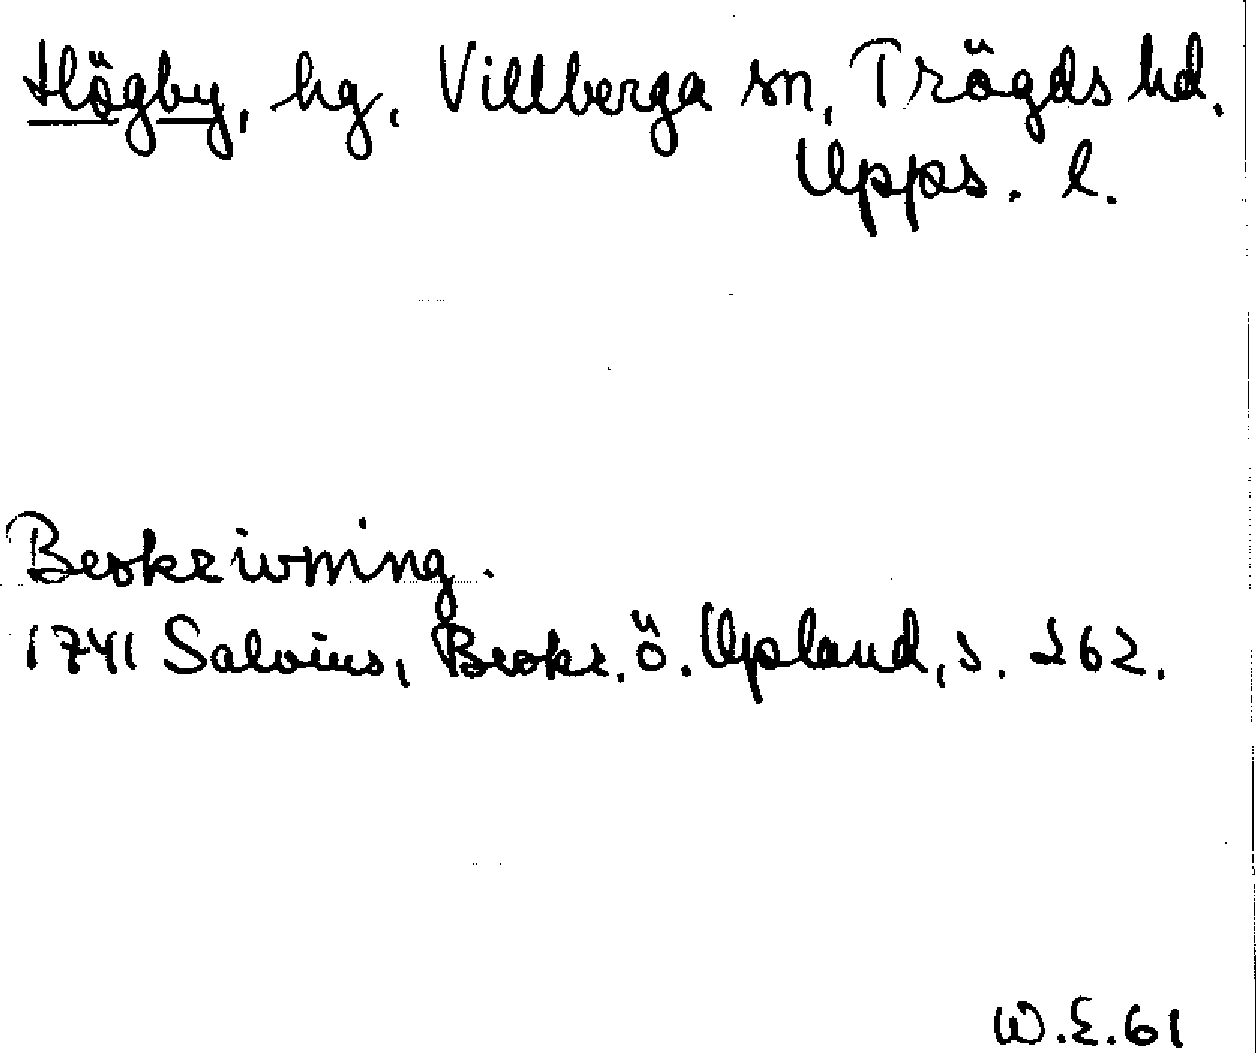 Högby, hg, Villberga sn, Trögds hd.
Upps. l.
Beskrivning.
1741 Salvius, Beskr. ö. Upland, s. 262.
W.E.61